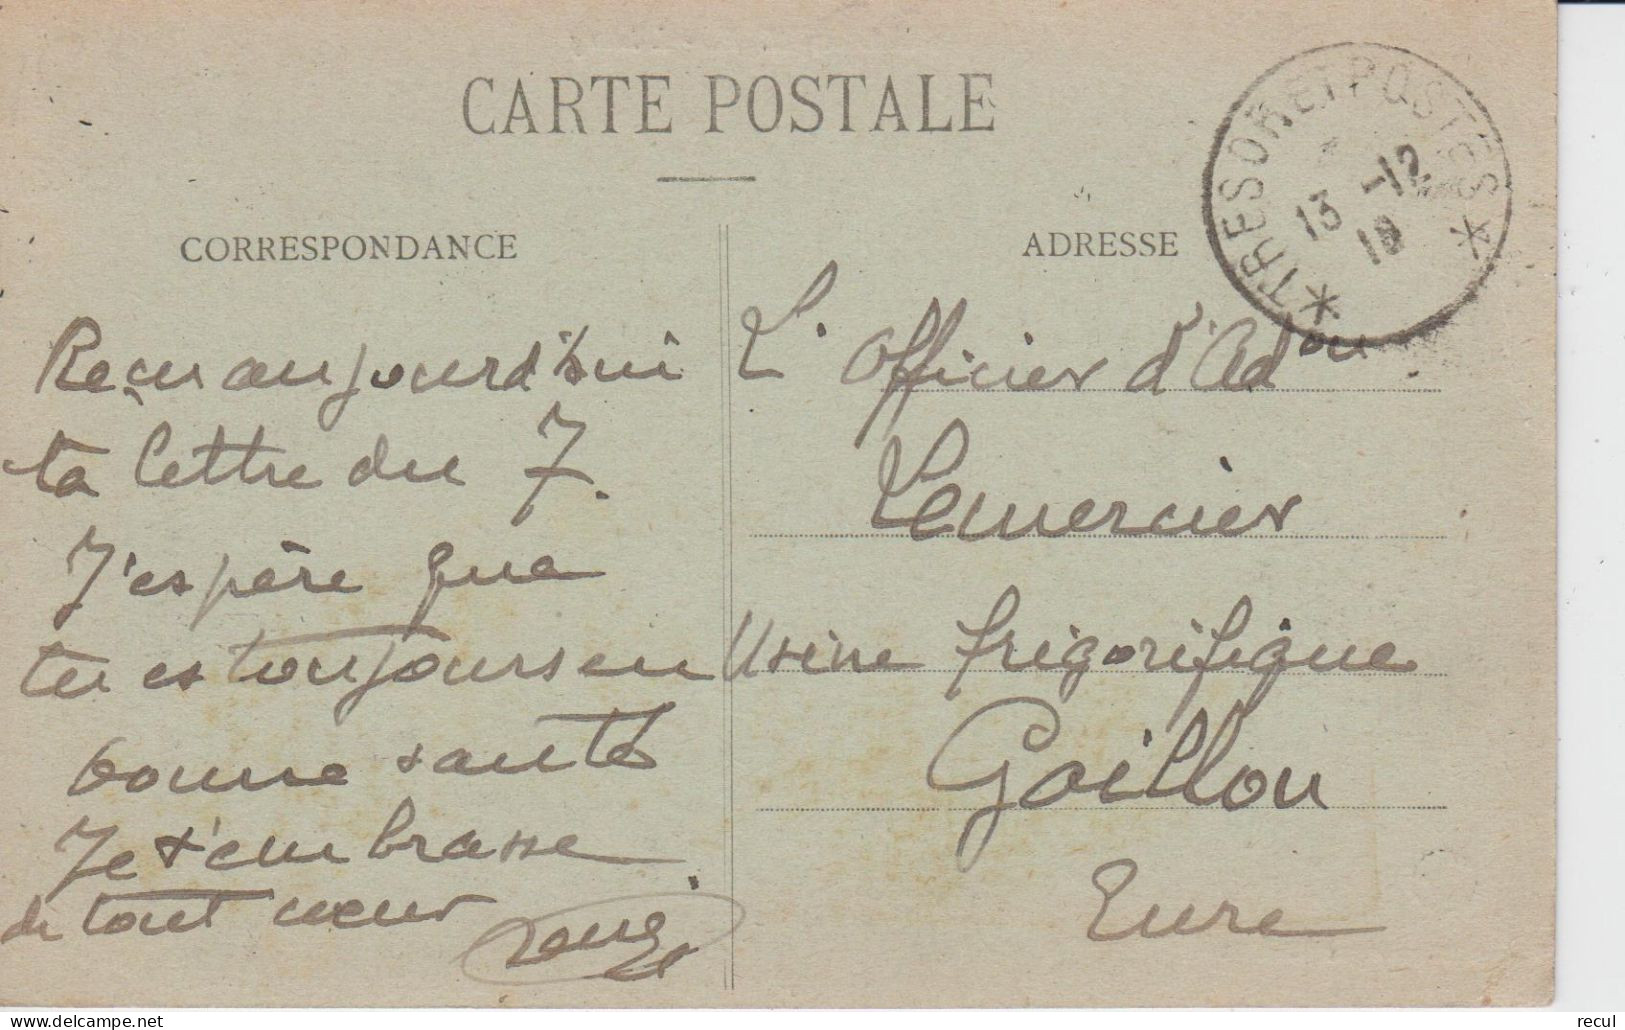 CARTE POSTALE
CORRESPONDANCE
ADRESSE
TRESOR ET POSTES
13 -12
18
Reçu aujourd'hui
ta lettre du 7.
J'espère que
tu es toujours en
bonne santé
Je t'embrasse
de tout cœur
L'Officier d'Adon
Lemercier
Usine frigorifique
Gaillon
Eure
delcampe.net
recul